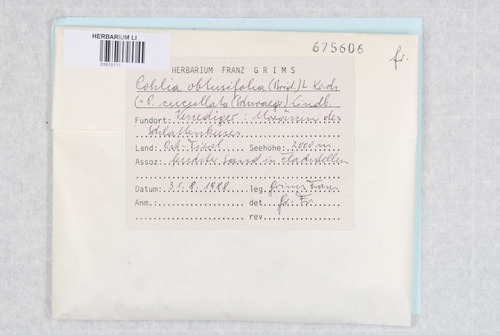 HERBARIUM LI
675606
fr.
HERBARIUM FRANZ GRIMS
obtusifolia (Brid.) L. Koch
(= P. cucullata (Schwaegr.) Lindb.
Fundort: Venediger: Moränen des
Schlattenkeeses
Land: Ost-Tirol Seehöhe: 2000 m
Assoz: feuchter Sand in
Datum: 31.8.1988 leg. Grims Franz
Anm.: det. Gr. Fr.
rev.